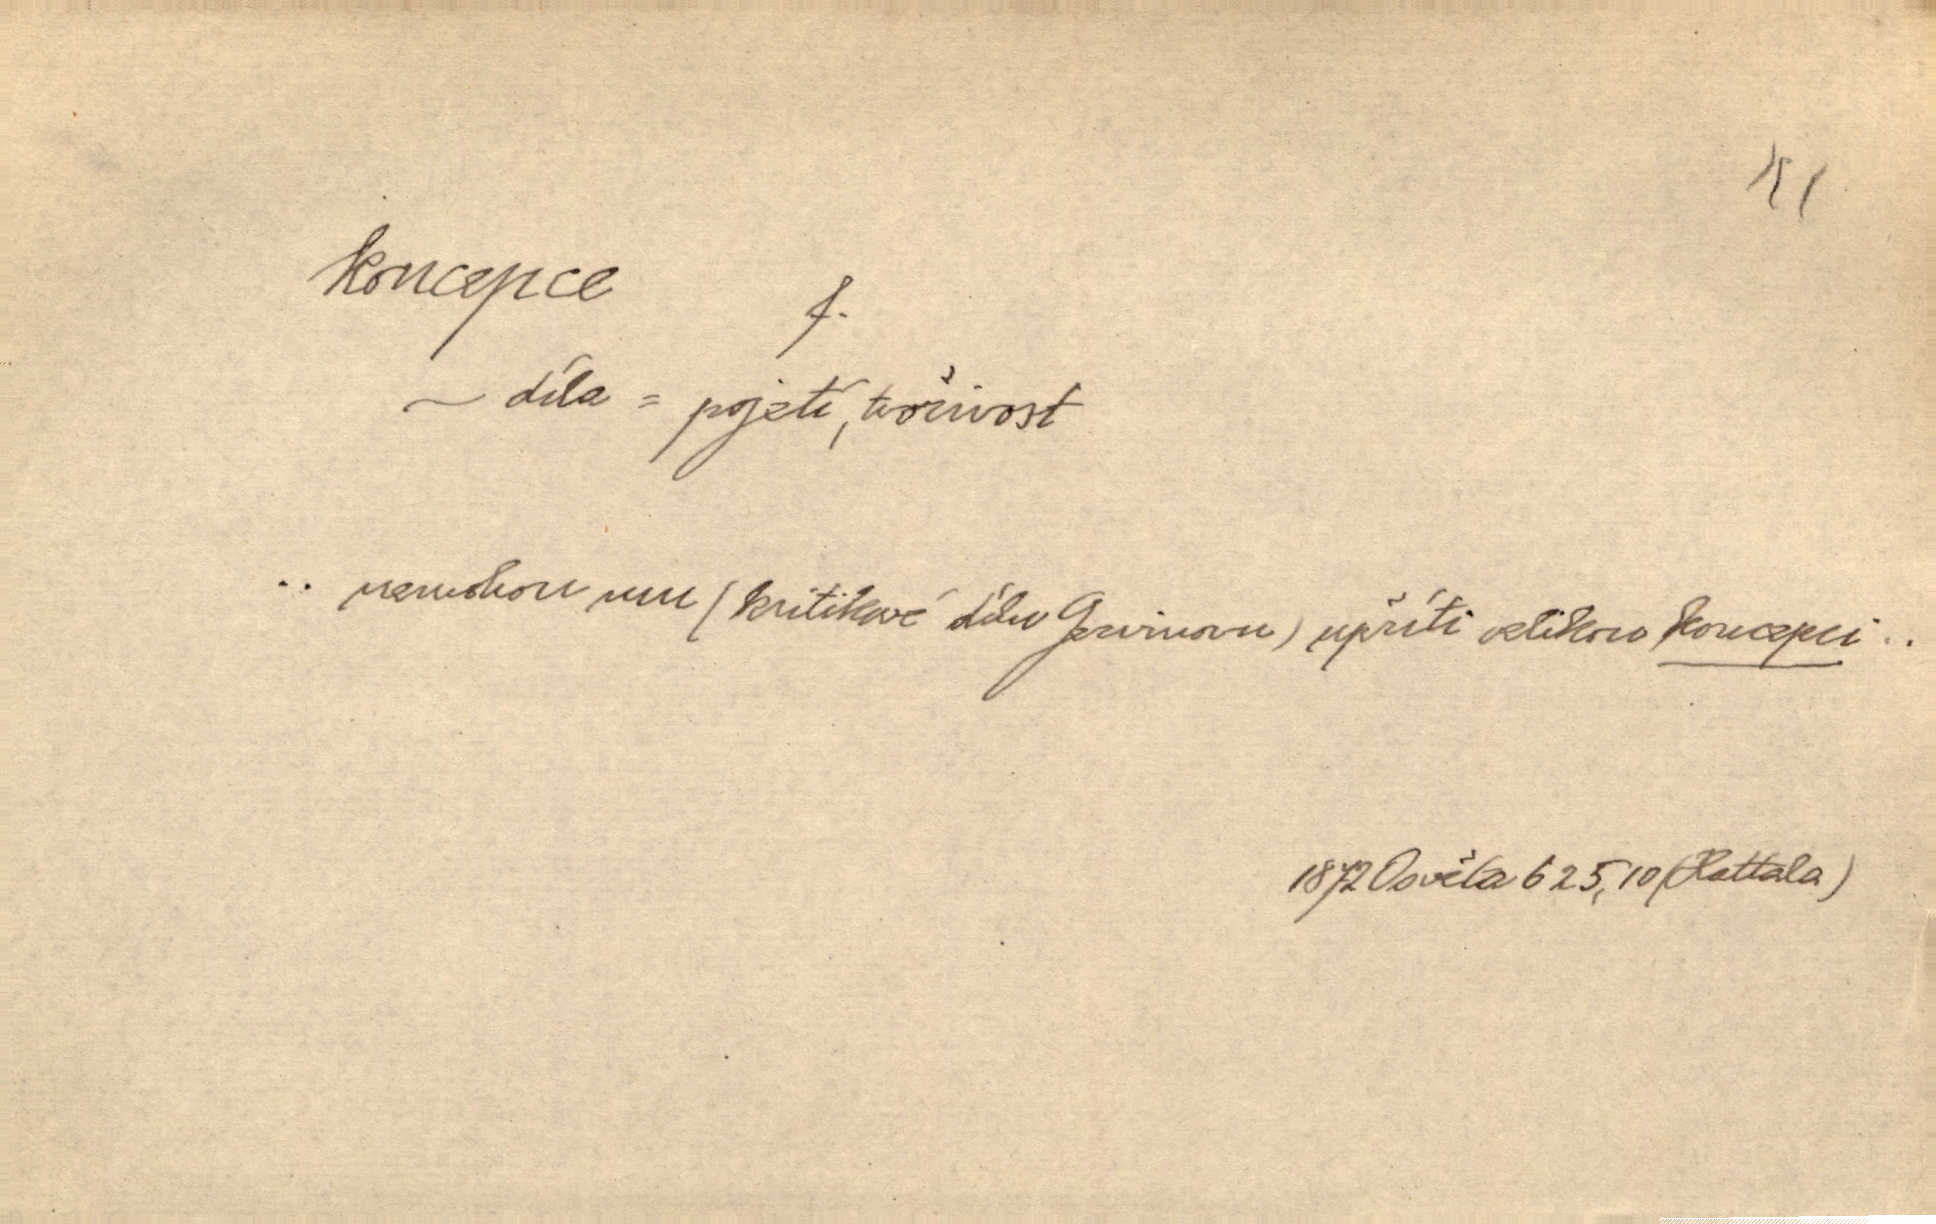 koncepce f.
~ díla = pojetí, tvořivost
.. nemohou mu (kritikové dílu Gervinovu) upříti velikou koncepci ..
1872 Osvěta 625,10 (Hattala)